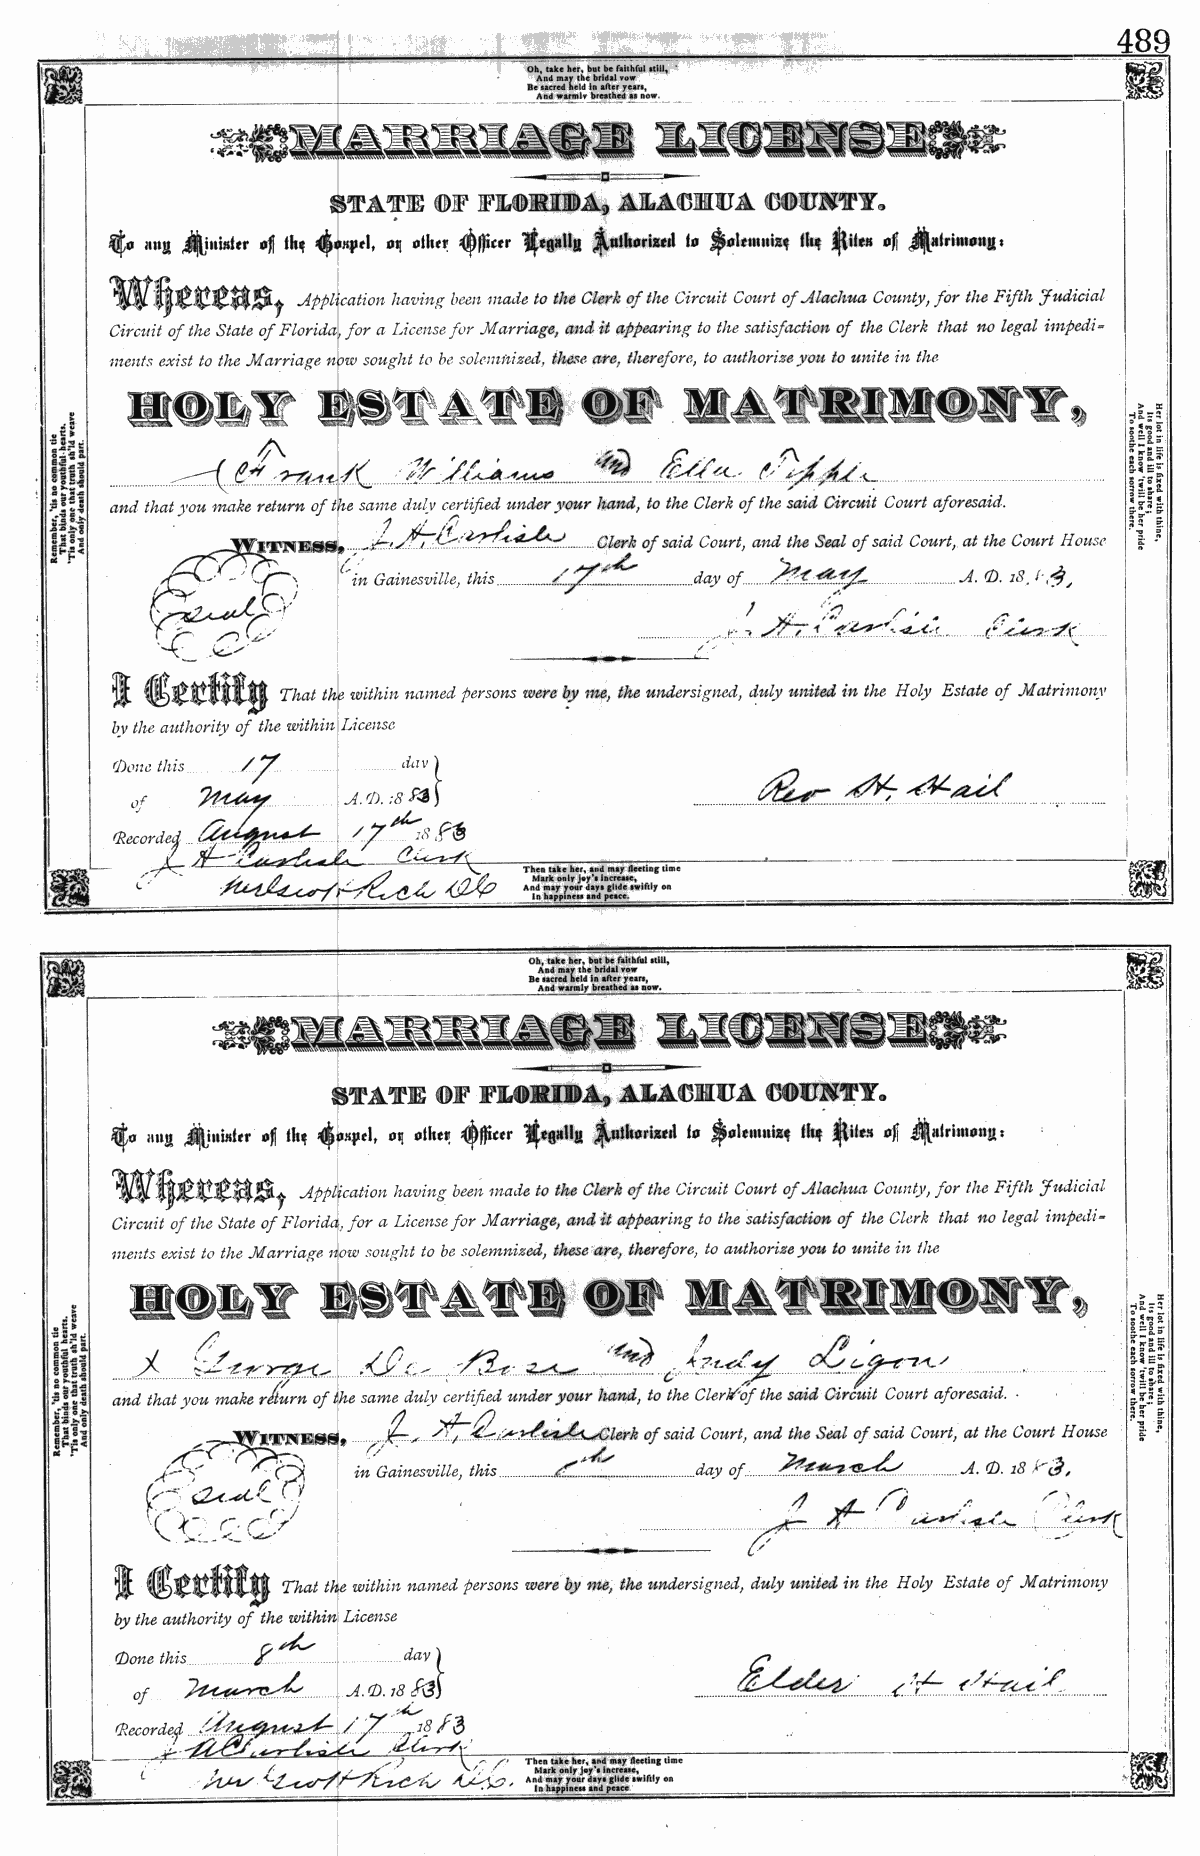 489
Oh, take her, but be faithful still,
And may the bridal vow
Be sacred held in after years,
And warmly breathed as now.
MARRIAGE LICENSE
STATE OF FLORIDA, ALACHUA COUNTY.
To any Minister of the Gospel, or other Officer Legally Authorized to Solemnize the Rites of Matrimony:
Whereas, Application having been made to the Clerk of the Circuit Court of Alachua County, for the Fifth Judicial
Circuit of the State of Florida, for a License for Marriage, and it appearing to the satisfaction of the Clerk that no legal impedi=
ments exist to the Marriage now sought to be solemnized, these are, therefore, to authorize you to unite in the
HOLY ESTATE OF MATRIMONY,
Frank Williams and Ella Tipple
and that you make return of the same duly certified under your hand, to the Clerk of the said Circuit Court aforesaid.
WITNESS, J. A. Carlisle Clerk of said Court, and the Seal of said Court, at the Court House
in Gainesville, this 17th day of May A. D. 1883.
Seal
J. A. Carlisle Clerk
I Certify That the within named persons were by me, the undersigned, duly united in the Holy Estate of Matrimony
by the authority of the within License
Done this 17 day
of May A. D. 1883
Rev H. Hail
Recorded August 17th 1883
J A Carlisle Clerk
Rich D C
Then take her, and may fleeting time
Mark only joy's increase,
And may your days glide swiftly on
In happiness and peace.
Remember, 'tis no common tie
That binds our youthful hearts,
'Tis only one that truth sh'ld weave
And only death should part.
Her lot in life is fixed with thine,
Its good and ill to share;
And well I know 'twill be her pride
To soothe each sorrow there.
Oh, take her, but be faithful still,
And may the bridal vow
Be sacred held in after years,
And warmly breathed as now.
MARRIAGE LICENSE
STATE OF FLORIDA, ALACHUA COUNTY.
To any Minister of the Gospel, or other Officer Legally Authorized to Solemnize the Rites of Matrimony:
Whereas, Application having been made to the Clerk of the Circuit Court of Alachua County, for the Fifth Judicial
Circuit of the State of Florida, for a License for Marriage, and it appearing to the satisfaction of the Clerk that no legal impedi=
ments exist to the Marriage now sought to be solemnized, these are, therefore, to authorize you to unite in the
HOLY ESTATE OF MATRIMONY,
x George De Bose and Judy Ligon
and that you make return of the same duly certified under your hand, to the Clerk of the said Circuit Court aforesaid.
WITNESS, J. A. Carlisle Clerk of said Court, and the Seal of said Court, at the Court House
in Gainesville, this day of March A. D. 1883.
Seal
J A Carlisle Clerk
I Certify That the within named persons were by me, the undersigned, duly united in the Holy Estate of Matrimony
by the authority of the within License
Done this 8th day
of March A. D. 1883
Elder H Hail
Recorded August 17th 1883
J A Carlisle Clerk
Rich D C.
Then take her, and may fleeting time
Mark only joy's increase,
And may your days glide swiftly on
In happiness and peace
Remember, 'tis no common tie
That binds our youthful hearts,
'Tis only one that truth sh'ld weave
And only death should part.
Her lot in life is fixed with thine,
Its good and ill to share;
And well I know 'twill be her pride
To soothe each sorrow there.